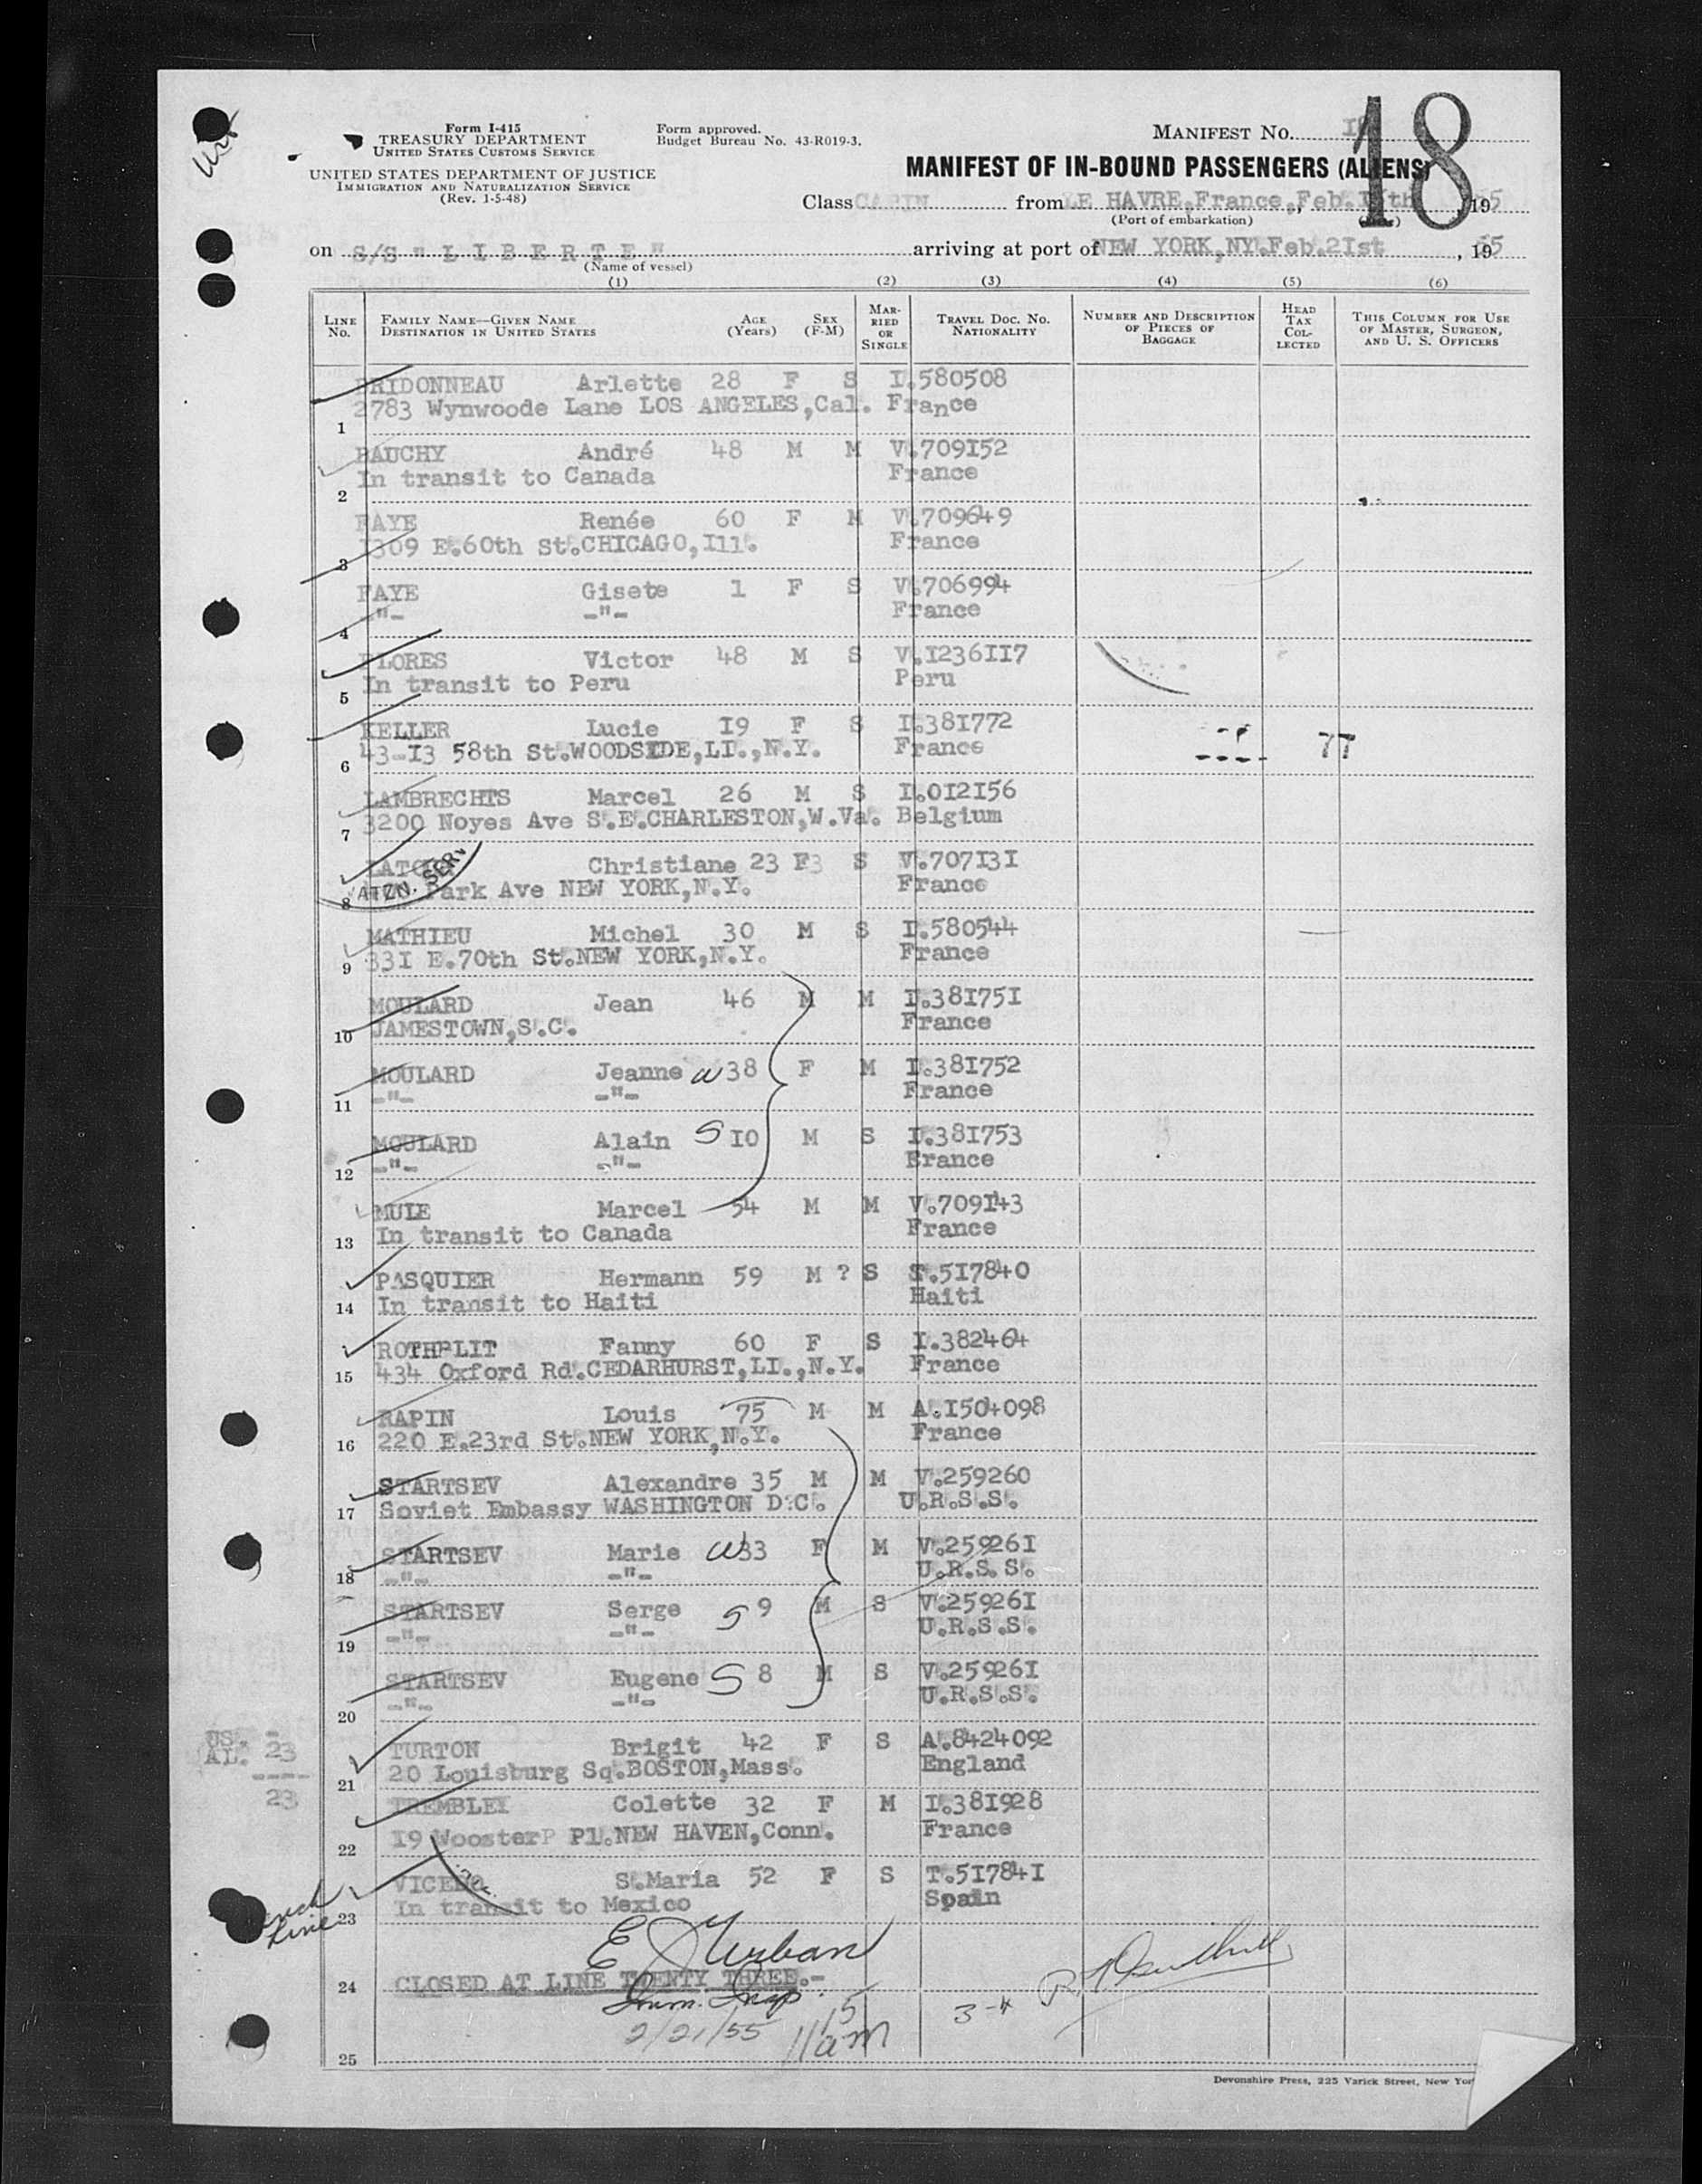 Form I-415
TREASURY DEPARTMENT
UNITED STATES CUSTOMS SERVICE
UNITED STATES DEPARTMENT OF JUSTICE
IMMIGRATION AND NATURALIZATION SERVICE
(Rev. 1-5-48)
Form approved.
Budget Bureau No. 43-R019-3.
MANIFEST No.
18
MANIFEST OF IN-BOUND PASSENGERS (ALIENS)
Class CABIN from LE HAVRE, France, Feb. , 1955
(Port of embarkation)
on S/S " L I B E R T E " arriving at port of NEW YORK, NY. Feb. 2Ist , 1955
(Name of vessel)
(1) (2) (3) (4) (5) (6)
LINE No. FAMILY NAME—GIVEN NAME DESTINATION IN UNITED STATES AGE (Years) SEX (F-M) MARRIED OR SINGLE TRAVEL DOC. NO. NATIONALITY NUMBER AND DESCRIPTION OF PIECES OF BAGGAGE HEAD TAX COLLECTED THIS COLUMN FOR USE OF MASTER, SURGEON, AND U. S. OFFICERS
RIDONNEAU Arlette 28 F S I.580508
2783 Wynwoode Lane LOS ANGELES, Cal. France
1
André 48 M M V.709I52
In transit to Canada France
2
FAYE Renée 60 F M V.709649
I309 E.60th St.CHICAGO, Ill. France
3
FAYE Gisete 1 F S V.706994
-"- -"- France
4
FLORES Victor 48 M S V.I236II7
In transit to Peru Peru
5
KELLER Lucie I9 F S I.38I772
43-I3 58th St.WOODSIDE,LI.,N.Y. France
77
6
LAMBRECHTS Marcel 26 M S I.0I2I56
3200 Noyes Ave S.E.CHARLESTON,W.Va. Belgium
7
Christiane 23 F S V.707I3I
Park Ave NEW YORK,N.Y. France
ATZN. SERV
8
MATHIEU Michel 30 M S I.580544
33I E.70th St.NEW YORK,N.Y. France
9
MOULARD Jean 46 M M I.38I75I
JAMESTOWN,S.C. France
10
MOULARD Jeanne W 38 F M I.38I752
-"- -"- France
11
MOULARD Alain S I0 M S I.38I753
-"- -"- France
12
MULE Marcel 54 M M V.709I43
In transit to Canada France
13
PASQUIER Hermann 59 M ? S T.5I7840
In transit to Haiti Haiti
14
ROTHPLIT Fanny 60 F S I.382464
434 Oxford Rd.CEDARHURST,LI.,N.Y. France
15
RAPIN Louis 75 M M A.I504098
220 E.23rd St.NEW YORK,N.Y. France
16
STARTSEV Alexandre 35 M M V.259260
Soviet Embassy WASHINGTON D.C. U.R.S.S.
17
STARTSEV Marie W 33 F M V.25926I
-"- -"- U.R.S.S.
18
STARTSEV Serge S 9 M S V.25926I
-"- -"- U.R.S.S.
19
STARTSEV Eugene S 8 M S V.25926I
-"- -"- U.R.S.S.
20
US. -
AL. 23
23
TURTON Brigit 42 F S A.8424092
20 Louisburg Sq.BOSTON,Mass. England
21
TREMBLEY Colette 32 F M I.38I928
I9 Wooster Pl.NEW HAVEN,Conn. France
22
S.Maria 52 F S T.5I784I
In transit to Mexico Spain
23
E J Urban
24 CLOSED AT LINE TWENTY THREE.-
Imm. Insp.
2/21/55 11am
3-4
25
Devonshire Press, 225 Varick Street, New Yor